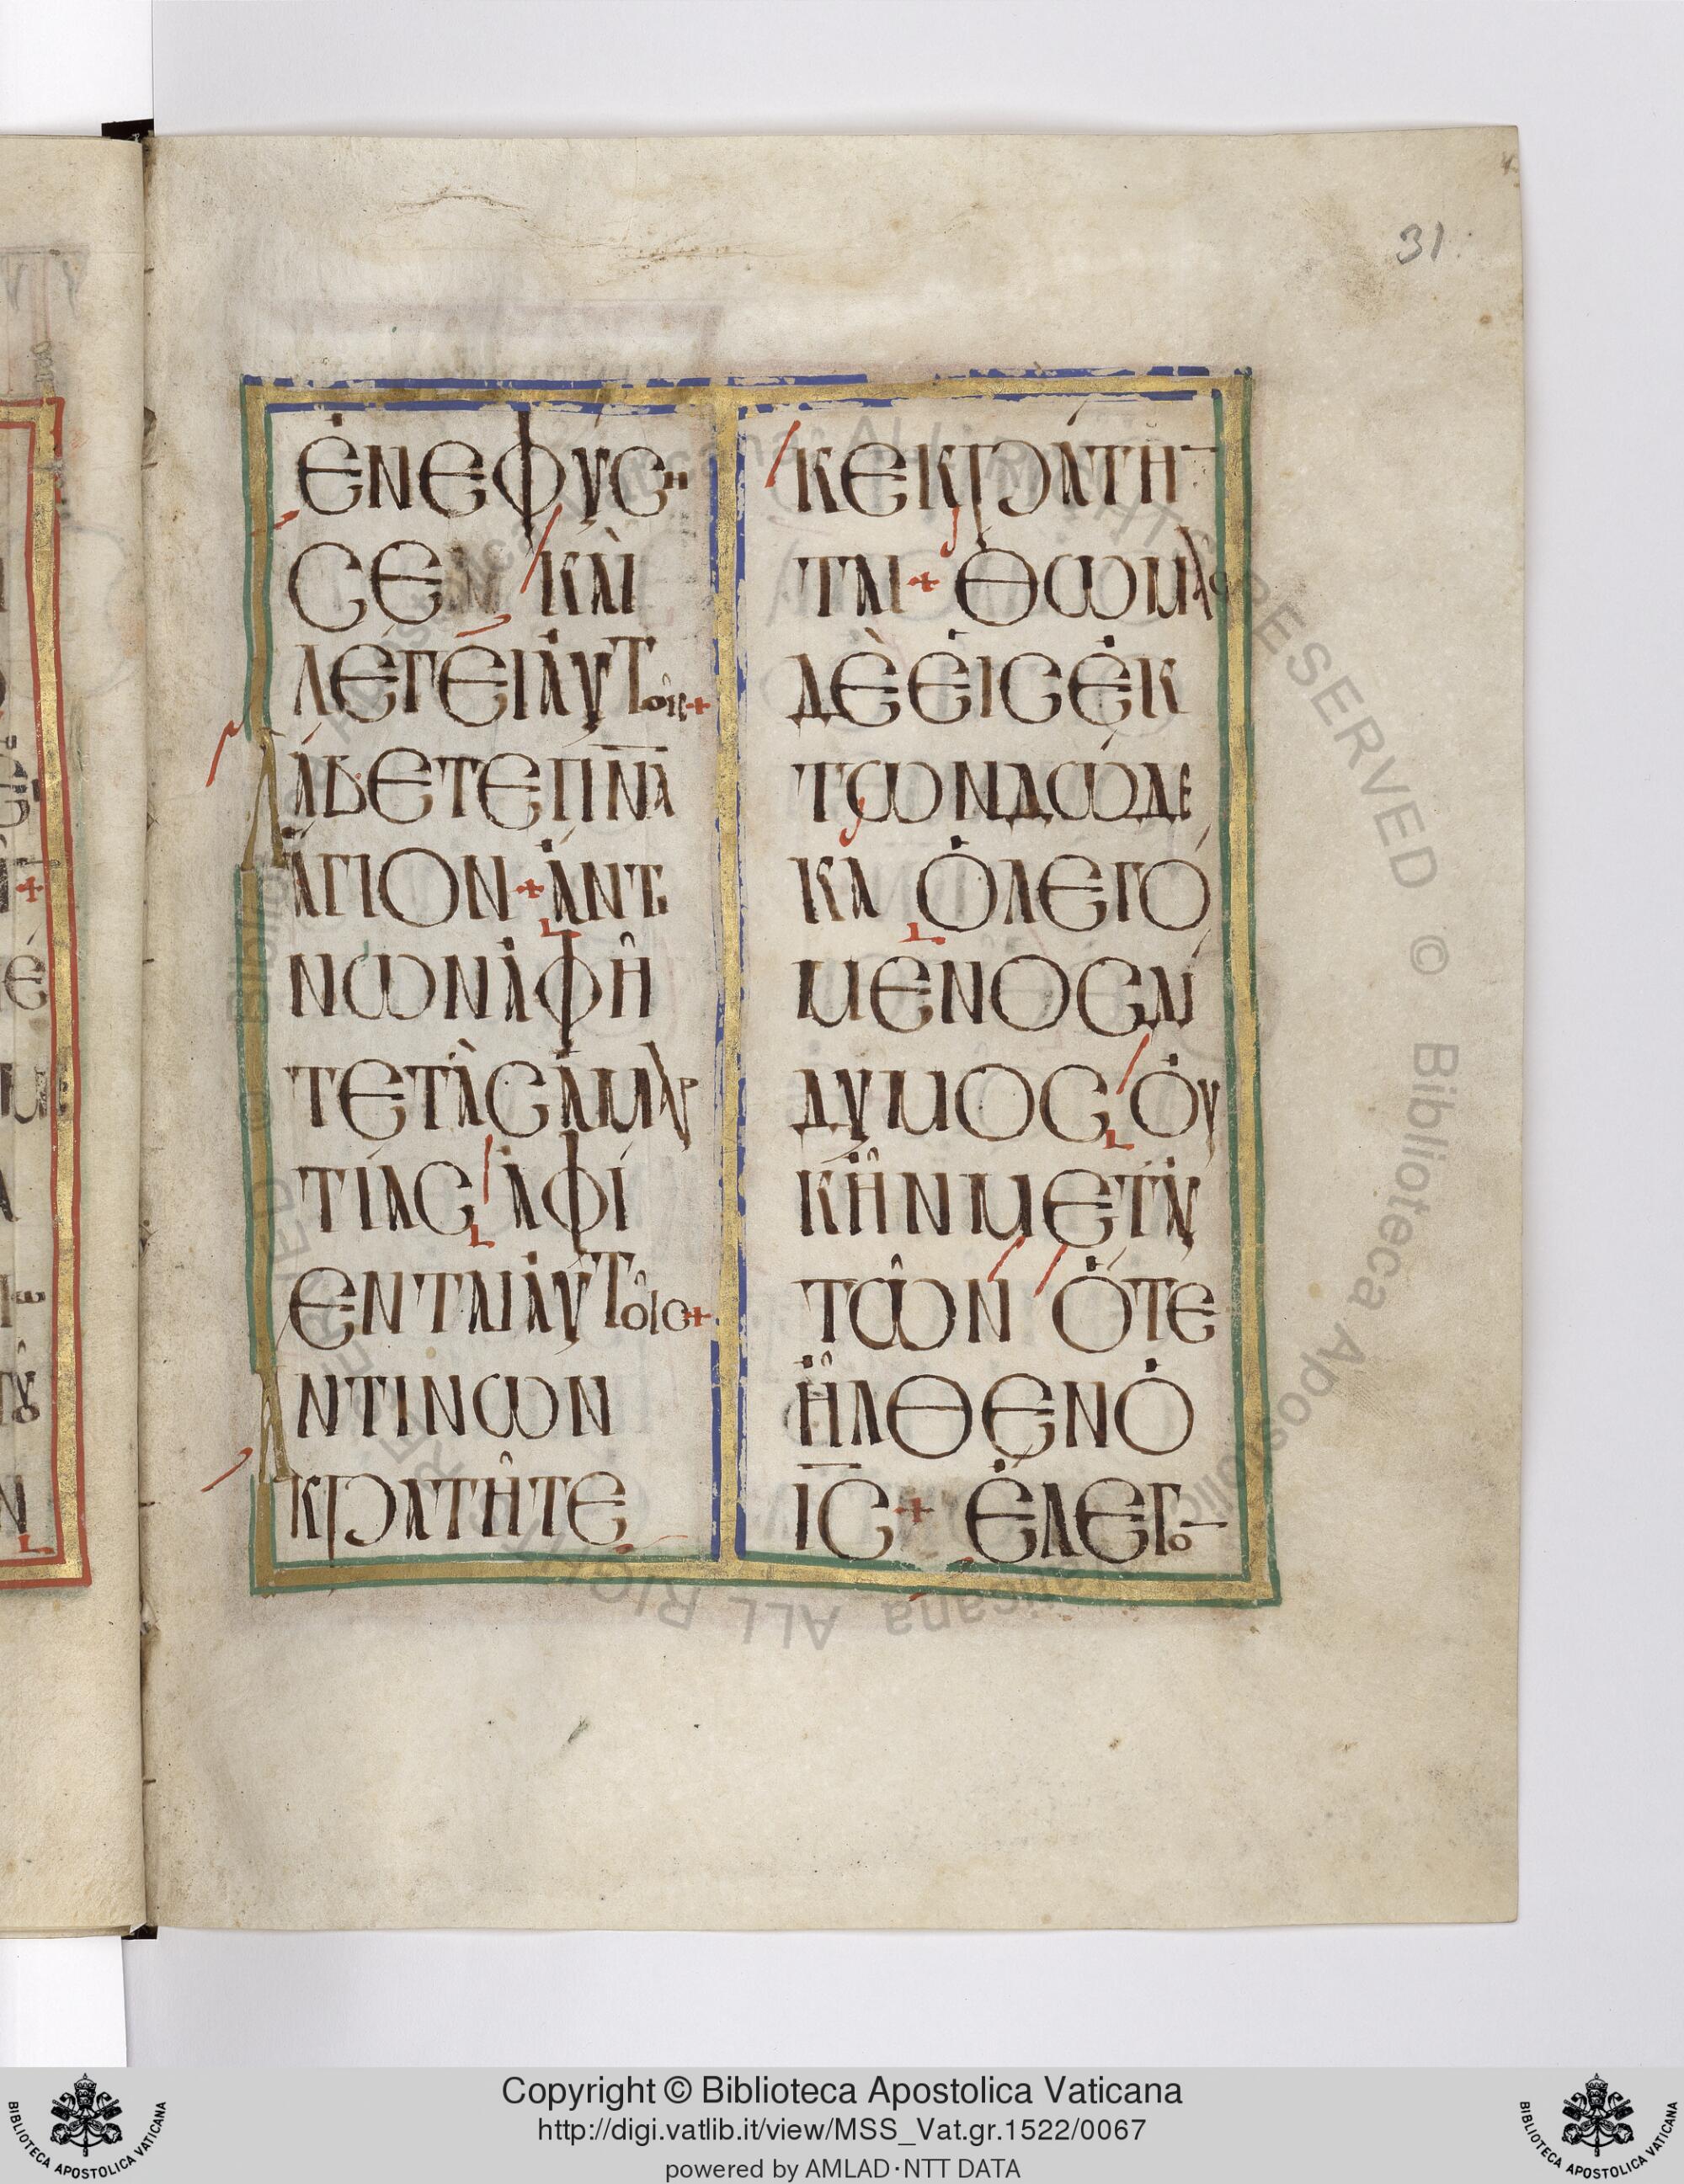 31
ἘΝΕΦΥCΗ
CΕΝ ΚΑῚ
ΛΈΓΕΙ ἈΥΤΟΙC+
ΛΆΒΕΤΕ Π̅Ν̅Α̅
ἍΓΙΟΝ+ἌΝΤΙ
ΝΩΝ ἈΦΗ͂
ΤΕ ΤᾺC ἉΜΑΡ
ΤΊΑC ἈΦΊ
ΕΝΤΑΙ ἈΥΤΟΙ͂C+
ἌΝΤΙΝΩΝ
ΚΡΑΤΗ͂ΤΕ
ΚΕΚΡΆΤΗΝ
ΤΑΙ+ΘΩΜΑC
ΔῈ ἘΙC ἘΚ
ΤΩΝ ΔΏΔΕ
ΚΑ ὉΛΕΓΌ
ΜΕΝΟC ΔΊ
ΔΥΜΟC ὈΥ
Κ ἮΝ ΜΕΤ ἈΥ
ΤΩ͂Ν ὍΤΕ
ἮΛΘΕΝ Ὁ
Ι̅C̅+ ἜΛΕΓΟΝ
Copyright © Biblioteca Apostolica Vaticana
http://digi.vatlib.it/view/MSS_Vat.gr.1522/0067
powered by AMLAD·NTT DATA
BIBLIOTECA APOSTOLICA VATICANA
BIBLIOTECA APOSTOLICA VATICANA